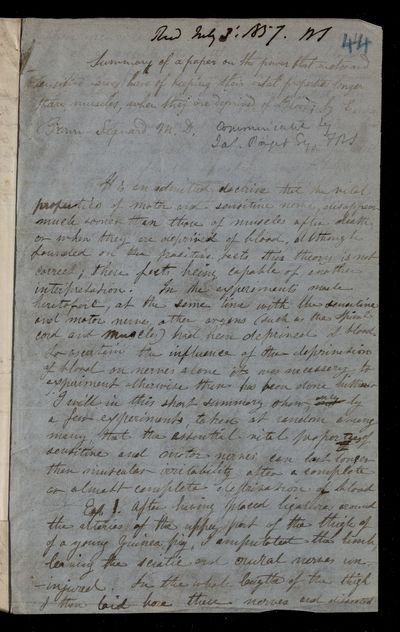 Recd July 3. 1857.
44
Summary of a paper on the power that motor and
sensitive nerves have of keeping their vital properties longer
than muscles, when they are deprived of blood; by E.
Brown-Sequard M. D. Communicated by
Jas. Paget Esq. FRS
It is an admitted doctrine that the vital
properties of motor and sensitive nerves disappear
much sooner than those of muscles after death
or when they are deprived of blood. Although
founded on the positive facts this theory is not
correct, these facts being capable of another
interpretation. In the experiments made
heretofore, at the same time with the sensitive
and motor nerves, other organs (such as the spinal
cord and muscle) had been deprived of blood.
To ascertain the influence of the deprivation
of blood on nerves alone it was necessary to
experiment otherwise than has been done hitherto.
I will in this short summary show only by
a few experiments, taken at random among
many, that the essential vital properties of
sensitive and motor nerves can last longer
than muscular irritability after a complete
or almost complete deprivation of blood
Exp. 1. After having placed ligatures around
the arteries of the upper part of the thigh of
of a young Guinea pig, I amputated this limb,
leaving the sciatic and crural nerves un-
-injured. In the whole length of the thigh
I then laid bare these nerves and